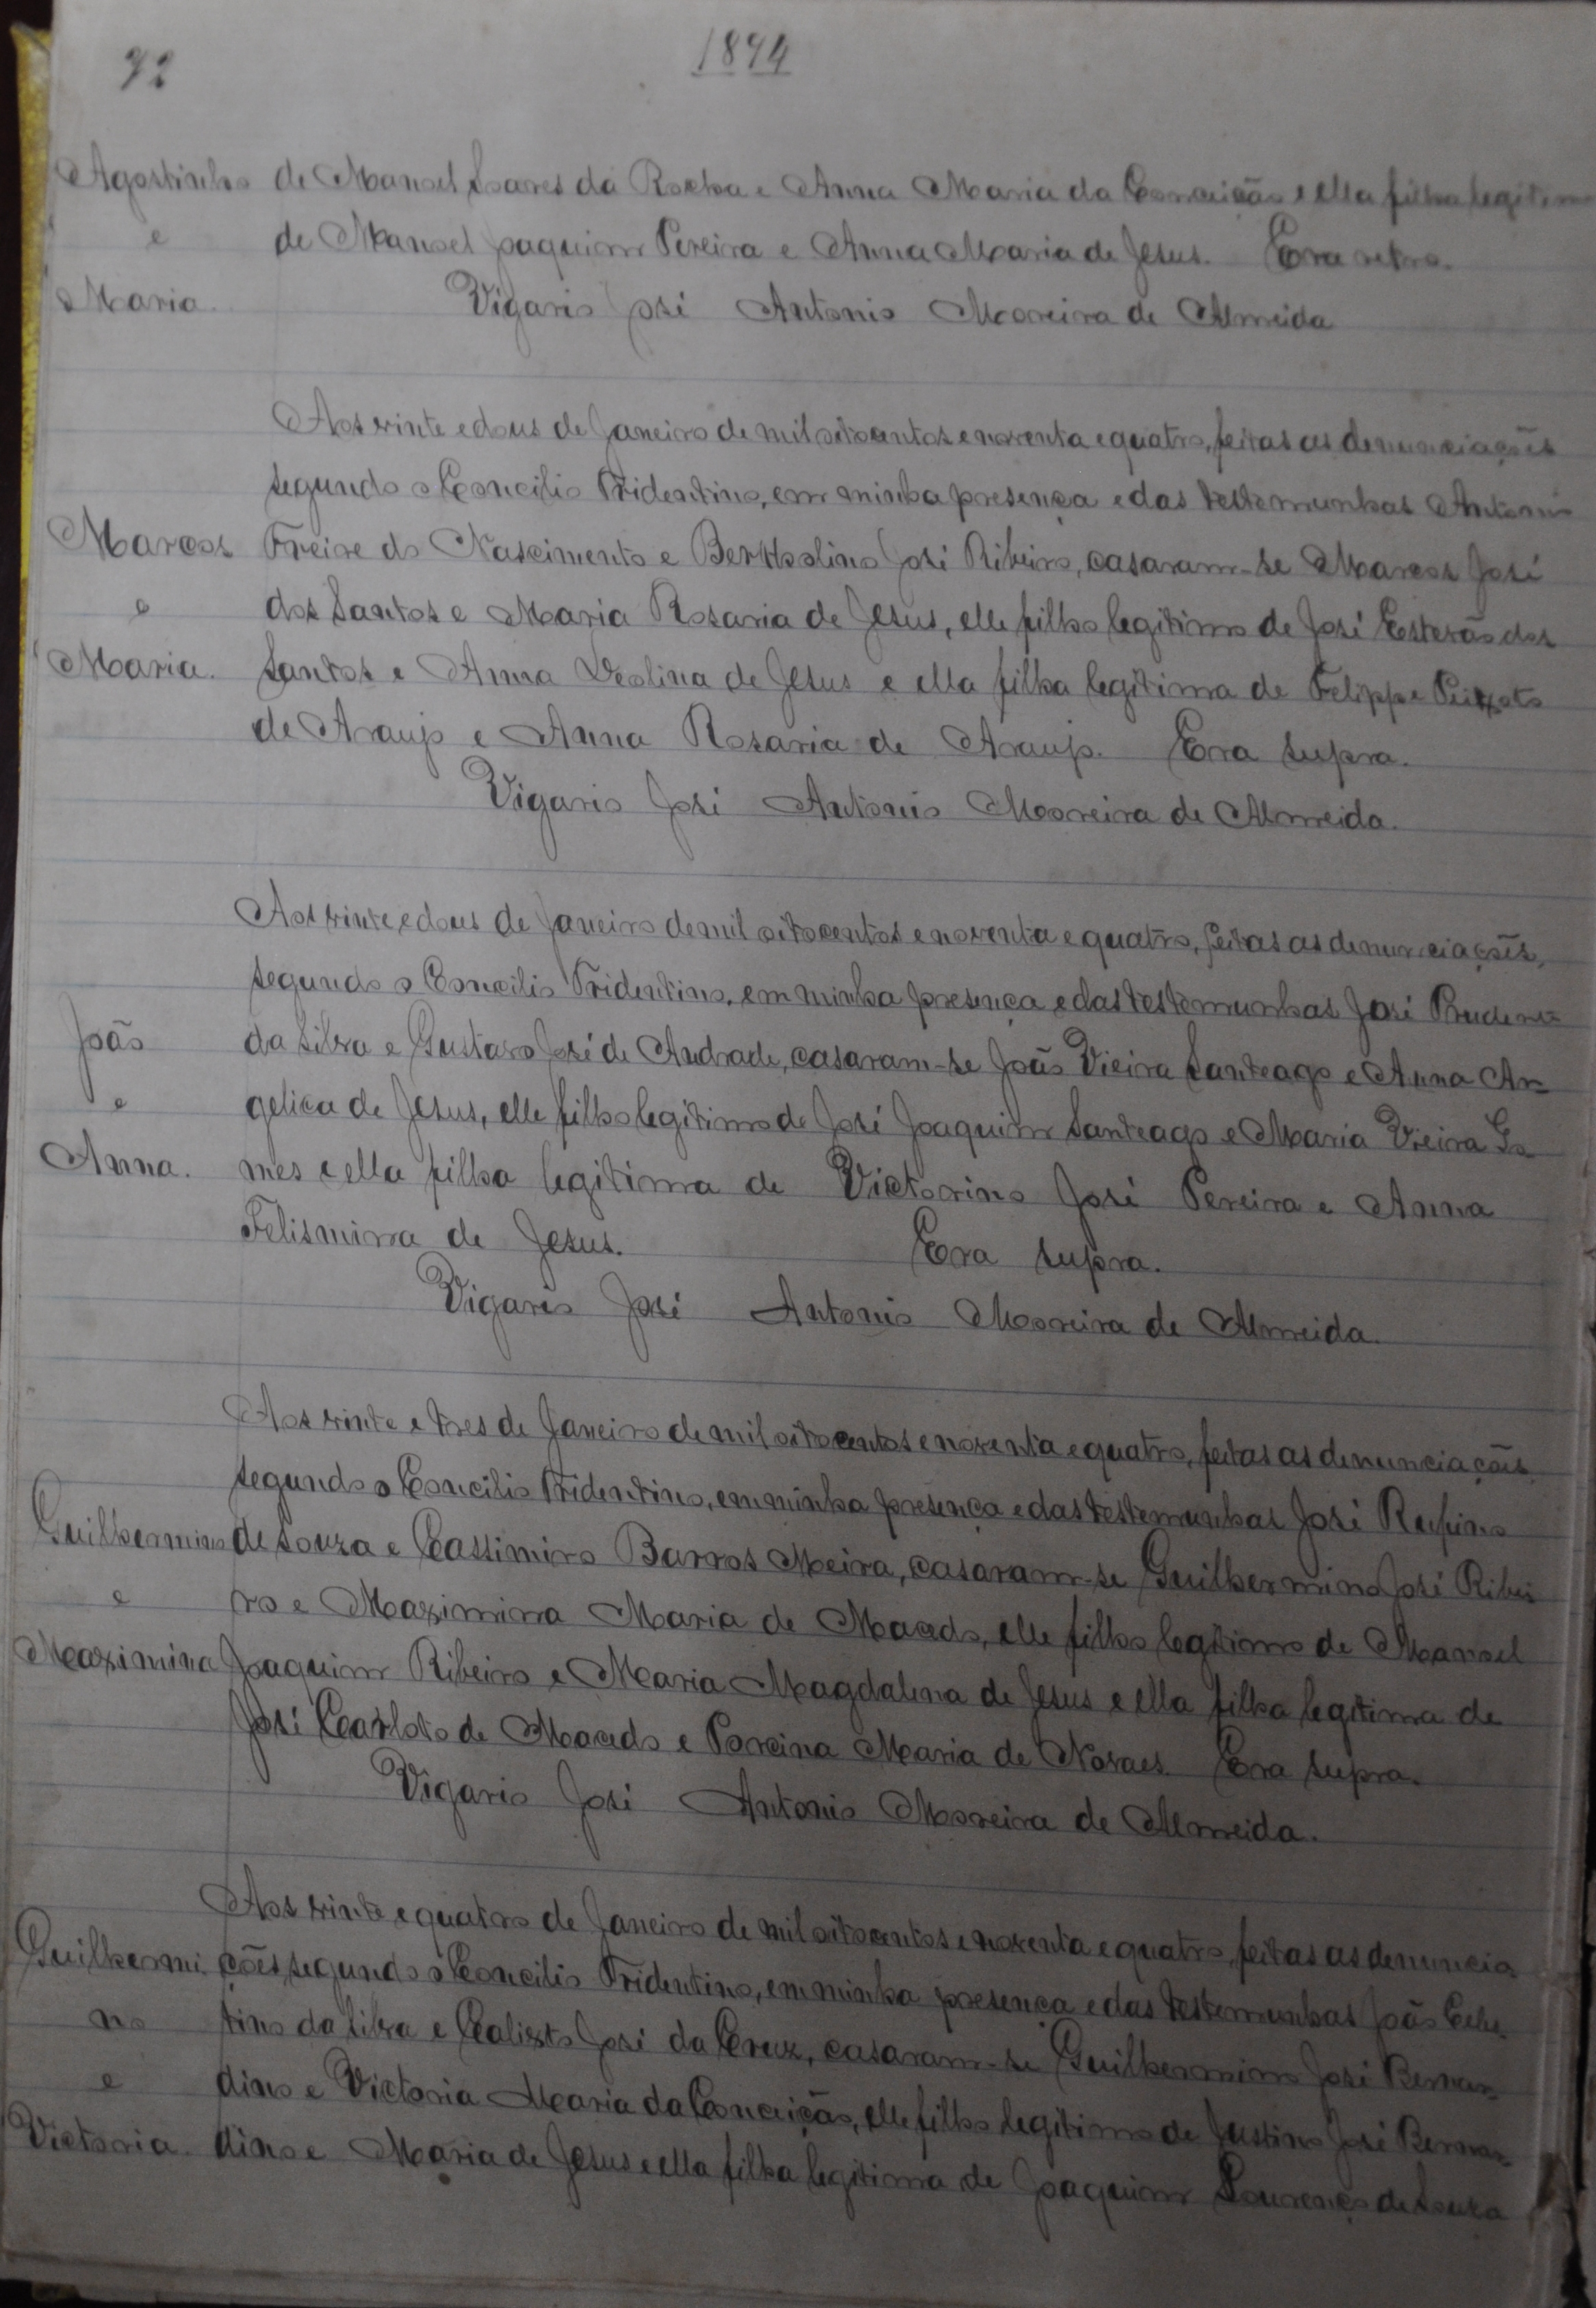 72
1894
Agostinho de Manoel Soares da Rocha e Anna Maria da Conceição e ella filha legitima
e de Manoel Joaquim Pereira e Anna Maria de Jesus. Era retro.
Maria. Vigario José Antonio Moreira de Almeida
Aos vinte e dous de Janeiro de mil oitocentos e noventa e quatro, feitas as denunciações
segundo o Concilio Tridentino, em minha presença e das testemunhas Antonio
Marcos Freire do Nascimento e Bertholino José Ribeiro, casaram-se Marcos José
e dos Santos e Maria Rosaria de Jesus, elle filho legitimo de José Estevão dos
Maria. Santos e Anna de Jesus e ella filha legitima de Felippe Peixoto
de Araujo e Anna Rosaria de Araujo. Era supra.
Vigario José Antonio Moreira de Almeida.
Aos vinte e dous de Janeiro de mil oitocentos e noventa e quatro, feitas as denunciações,
segundo o Concilio Tridentino, em minha presença e das testemunhas José Prudente
João da Silva e Gustavo José de Andrade, casaram-se João Vieira Santeago e Anna An-
e gelica de Jesus, elle filho legitimo de José Joaquim Santeago e Maria Vieira Go-
Anna. mes e ella filha legitima de Victorino José Pereira e Anna
Felismina de Jesus. Era supra.
Vigario José Antonio Moreira de Almeida.
Aos vinte e tres de Janeiro de mil oitocentos e noventa e quatro, feitas as denunciações
segundo o Concilio Tridentino, em minha presença e das testemunhas José Rufino
Guilhermino de Souza e Cassimiro Barros Meira, casaram-se Guilhermino José Ribei
e ro e Maximina Maria de Macedo, elle filho legitimo de Manoel
Maximina Joaquim Ribeiro e Maria Magdalena de Jesus e ella filha legitima de
José Carloto de Macedo e Porcina Maria de Novaes. Era supra.
Vigario José Antonio Moreira de Almeida.
Aos vinte e quatro de Janeiro de mil oitocentos e noventa e quatro, feitas as denuncia
Guilhermi ções segundo o Concilio Tridentino, em minha presença e das testemunhas João Celes
no tino da Silva e Calixto José da Cruz, casaram-se Guilhermino José Bernar-
e dino e Victoria Maria da Conceição, elle filho legitimo de Justino José Bernar-
Victoria. dino e Maria de Jesus e ella filha legitima de Joaquim Lourenço de Souza